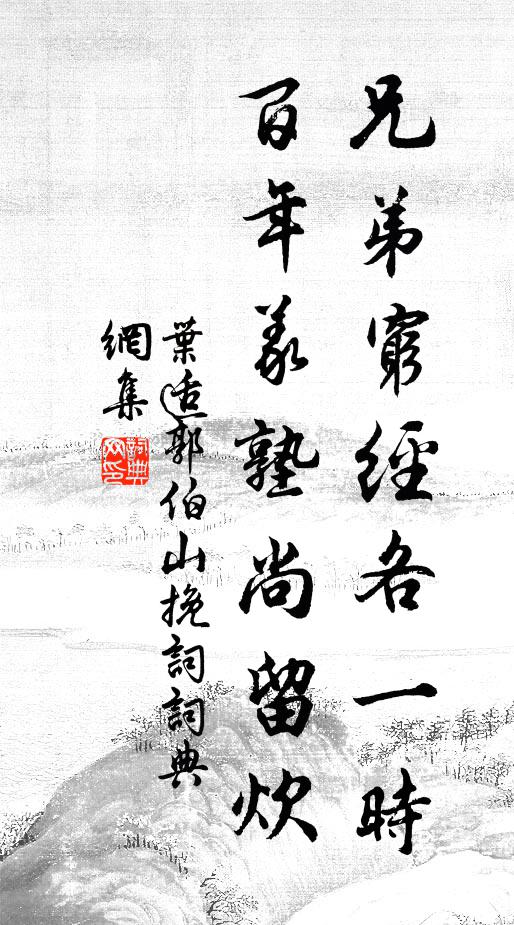 兄弟窮經各一時
百年義塾尚留炊
葉适郭伯山挽詞詞典
網集